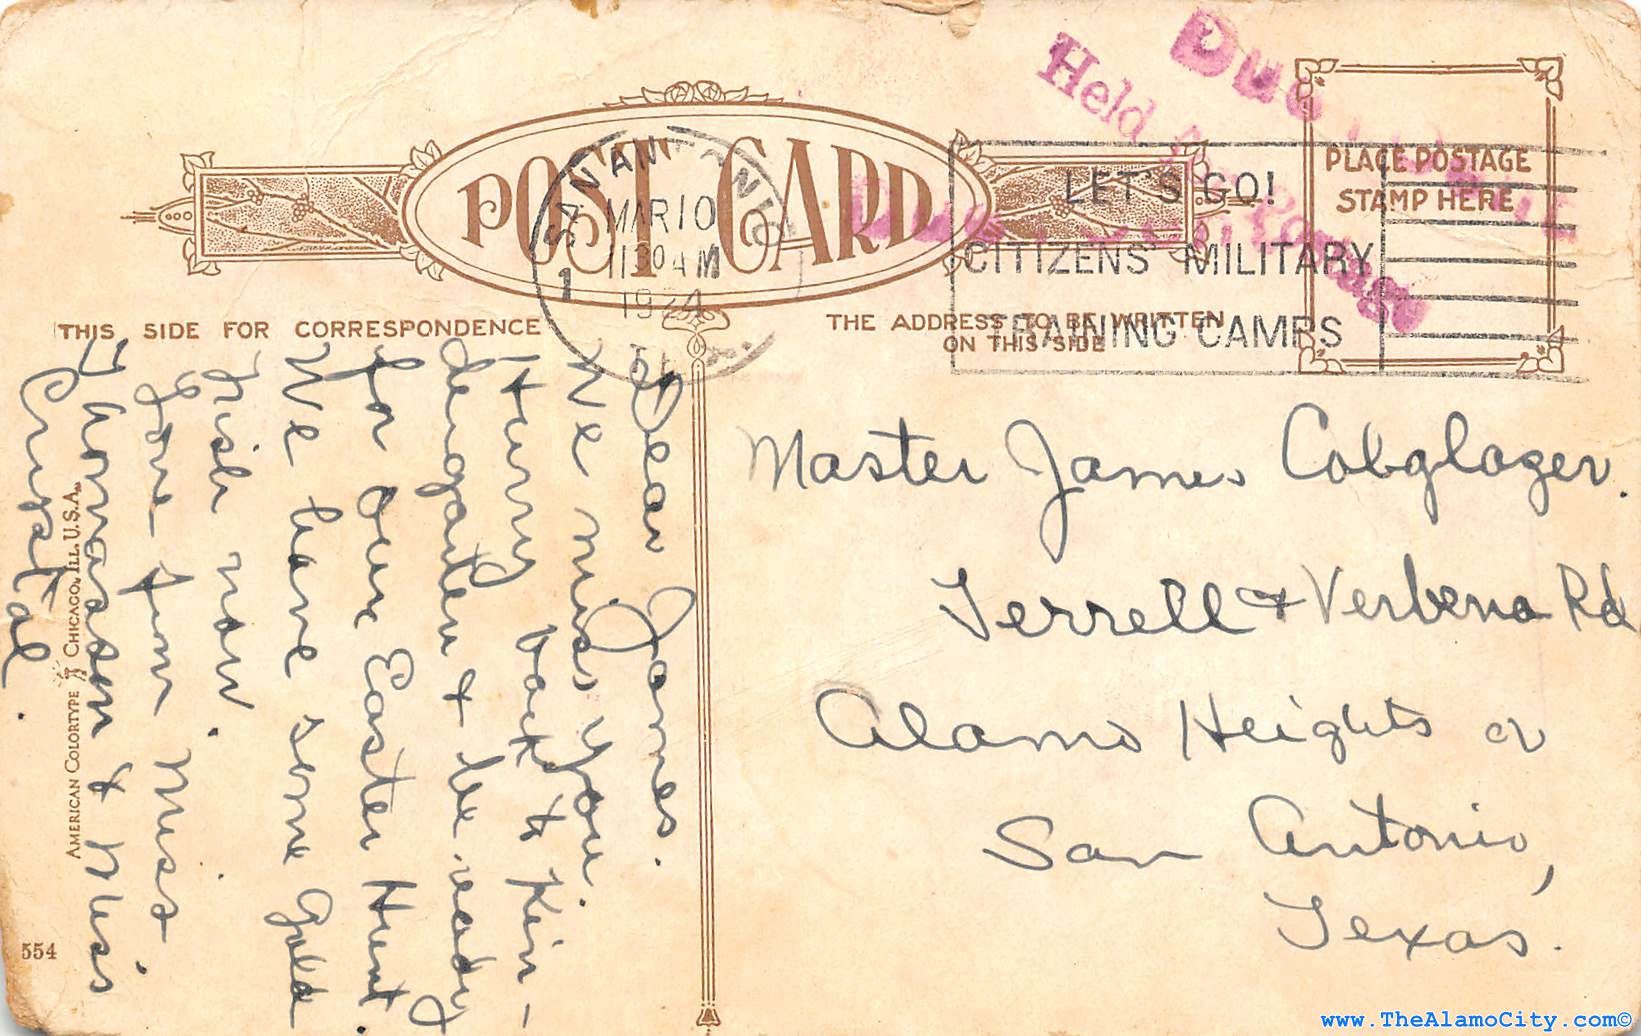 POST CARD
SAN ANTONIO
MAR 10
11 30 AM
1924
TEX.
1
LET'S GO!
CITIZENS' MILITARY
TRAINING CAMPS
Due
Held For Postage
PLACE POSTAGE
STAMP HERE
THIS SIDE FOR CORRESPONDENCE
THE ADDRESS TO BE WRITTEN
ON THIS SIDE
Dear James.
We miss you.
Hurry back to Kin-
dergarten & be ready
for our Easter Hunt.
We have some Gold
Fish now.
Love from Miss
Thomason & Miss
Crystal.
Master James Cobglazer.
Terrell & Verbena Rd
Alamo Heights or
San Antonio,
Texas.
AMERICAN COLORTYPE CHICAGO, ILL. U.S.A.
554
www.TheAlamoCity.com©